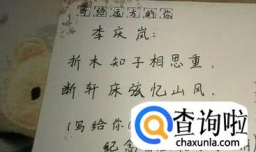 写给远方的你
李庆岚：
折木知子相思重，
断轩床弦忆山风。
(写给你
纪念
查询啦
chaxunla.com